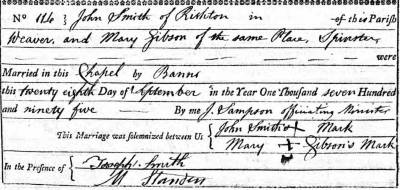 No 116 } John Smith of Rishton in of this Parish
Weaver, and Mary Gibson of the same Place, Spinster
were
Married in this Chapel by Banns
this twenty eighth Day of September in the Year One Thousand seven Hundred
and ninety five By me J. Sampson officiating Minister
This Marriage was solemnized between Us { John Smith's + Mark
Mary + Gibson's Mark
In the Presence of { Joseph Smith
M Standen